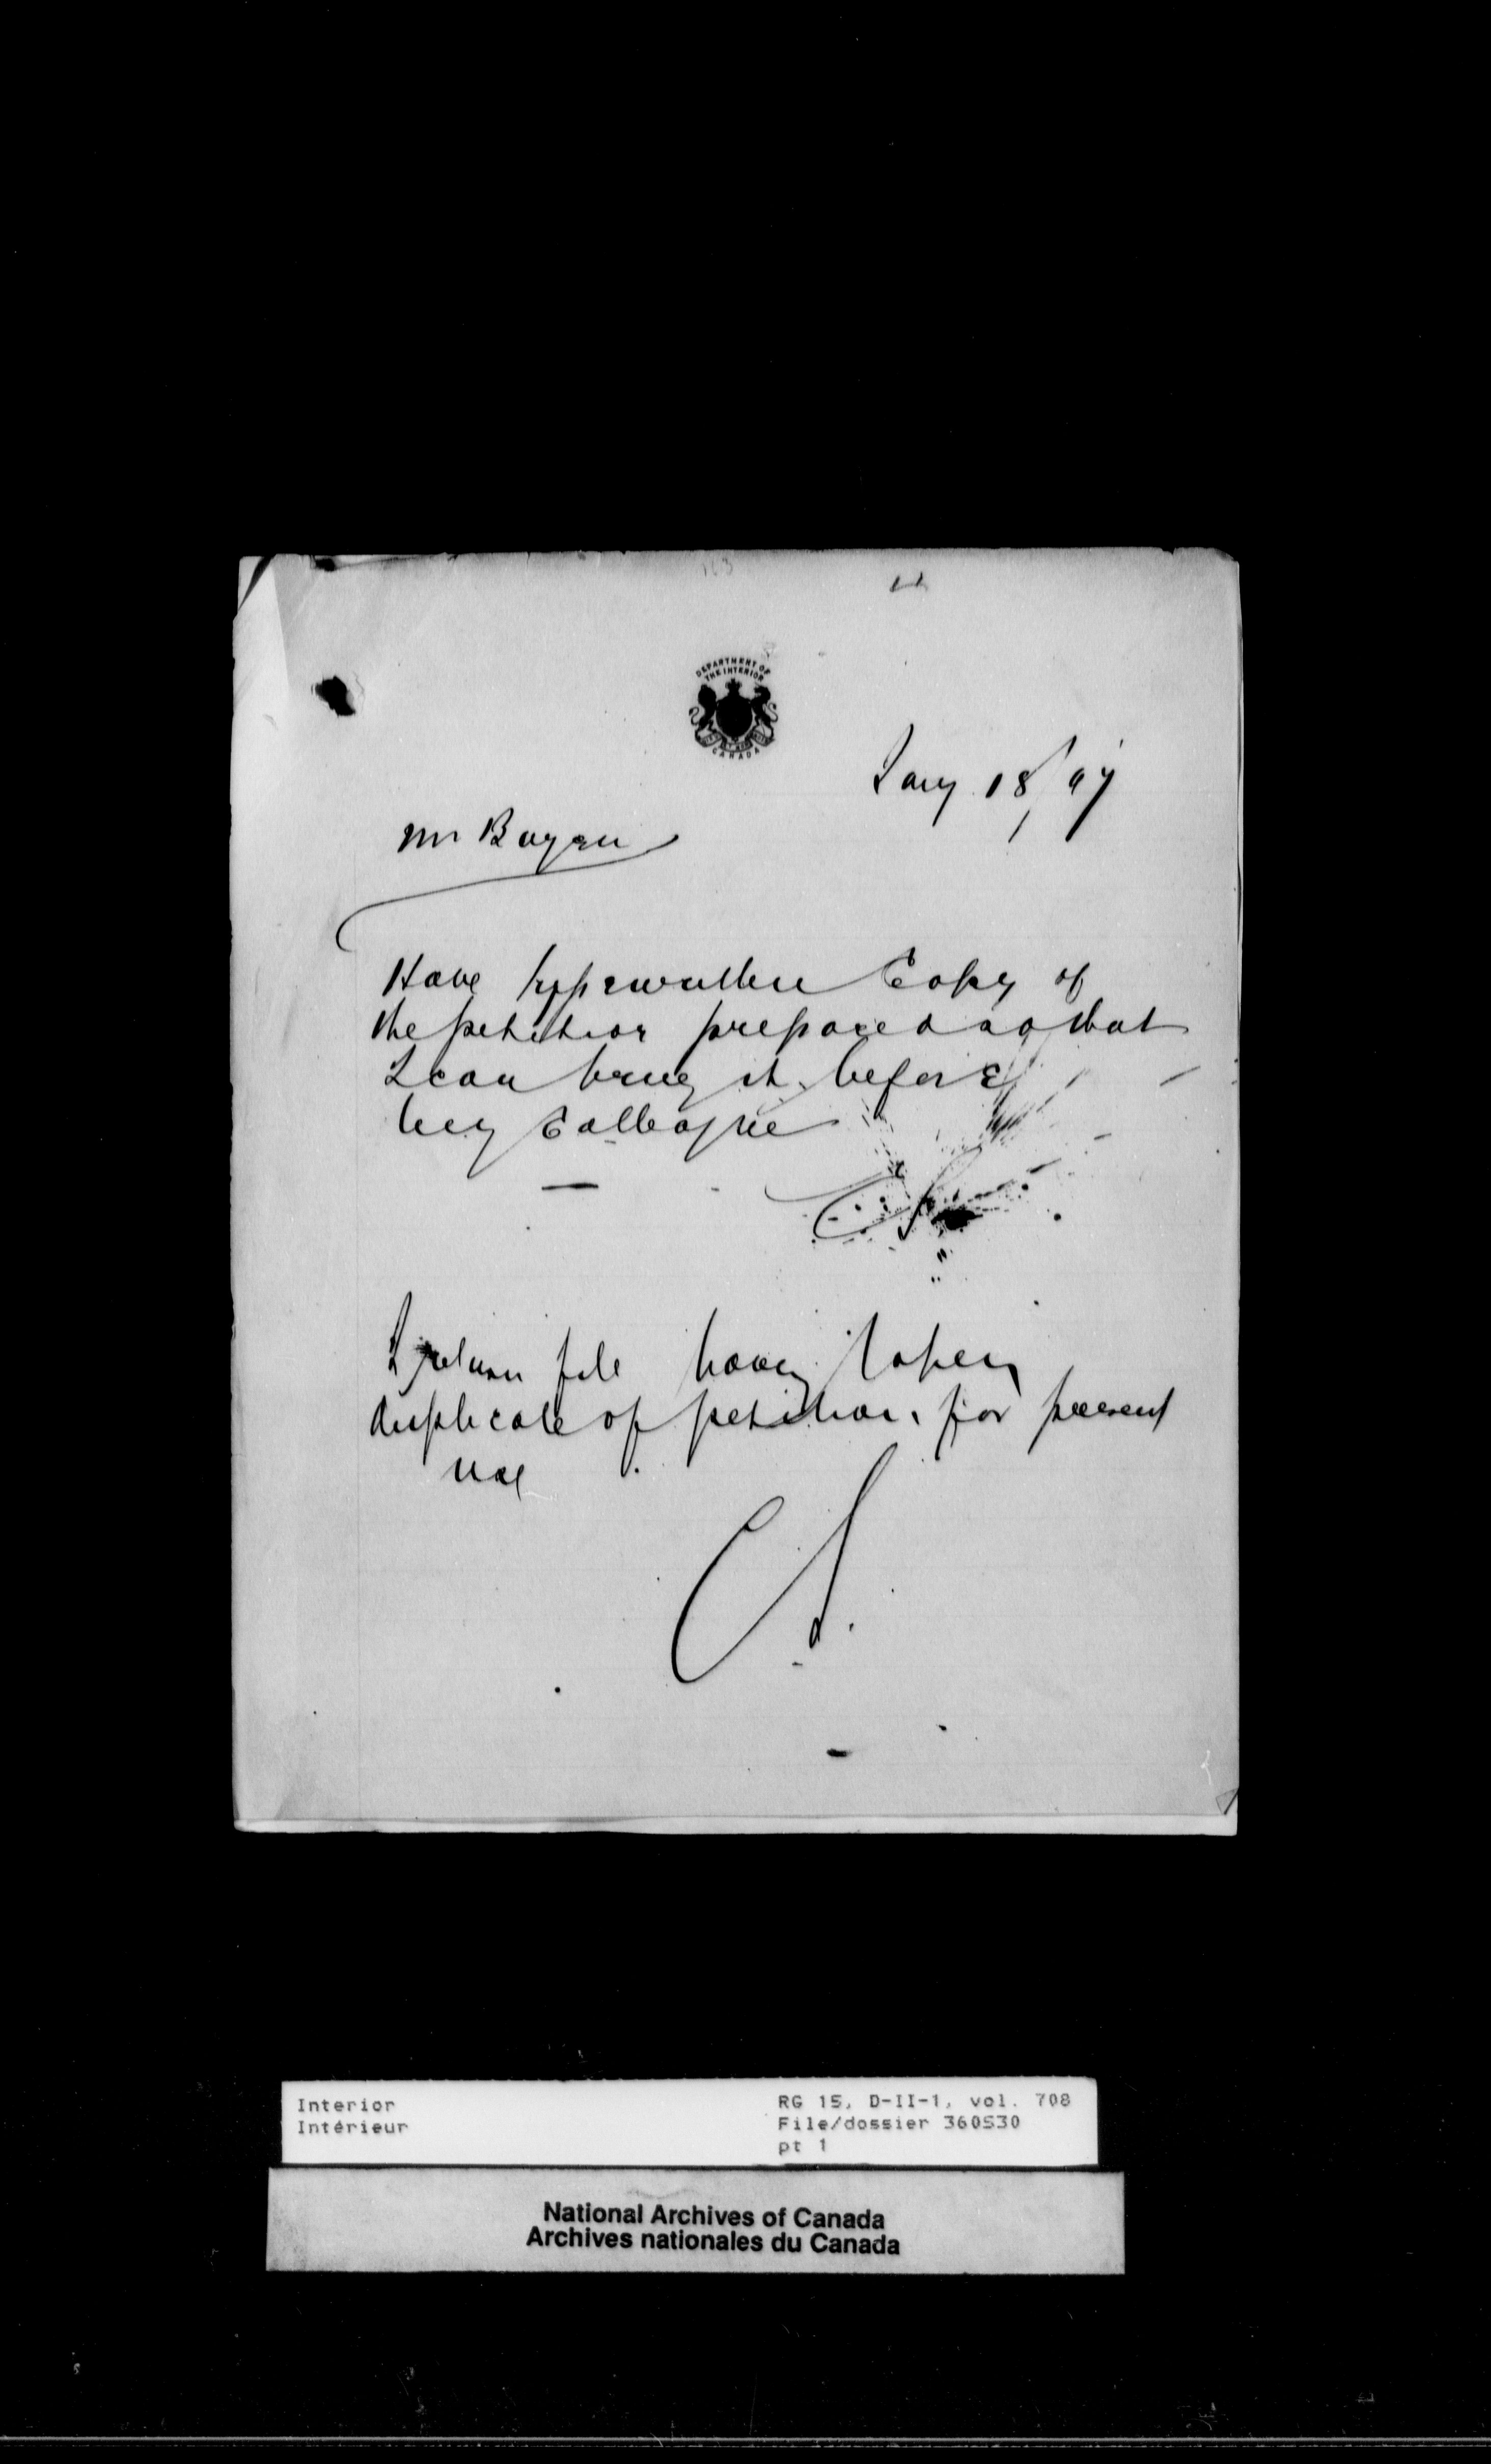 DEPARTMENT OF
THE INTERIOR
CANADA
Jany 18/97
Mr
Have typewritten Copy of
the petition prepared so that
I can bring it before
my Colleague
I return file having taken
duplicate of petition for present
use
CS.
Interior
Intérieur
RG 15, D-II-1, vol. 708
File/dossier 360530
pt 1
National Archives of Canada
Archives nationales du Canada